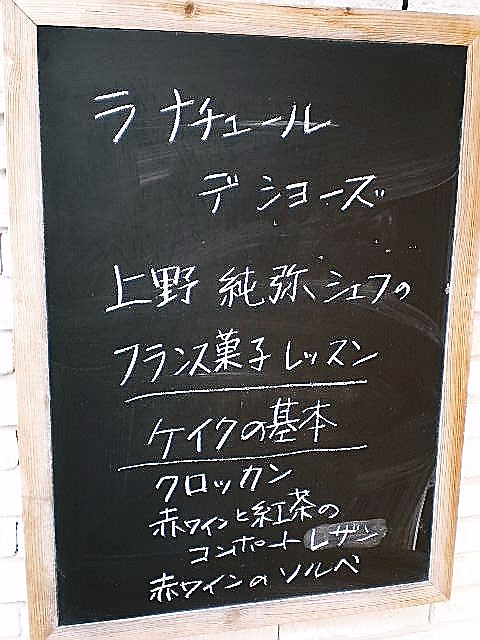 ラ ナチュール
デ ショーズ
上野 純弥シェフの
フランス菓子レッスン
ケイクの基本
クロッカン
赤ワインと紅茶の
コンポート レザン
赤ワインのソルベ